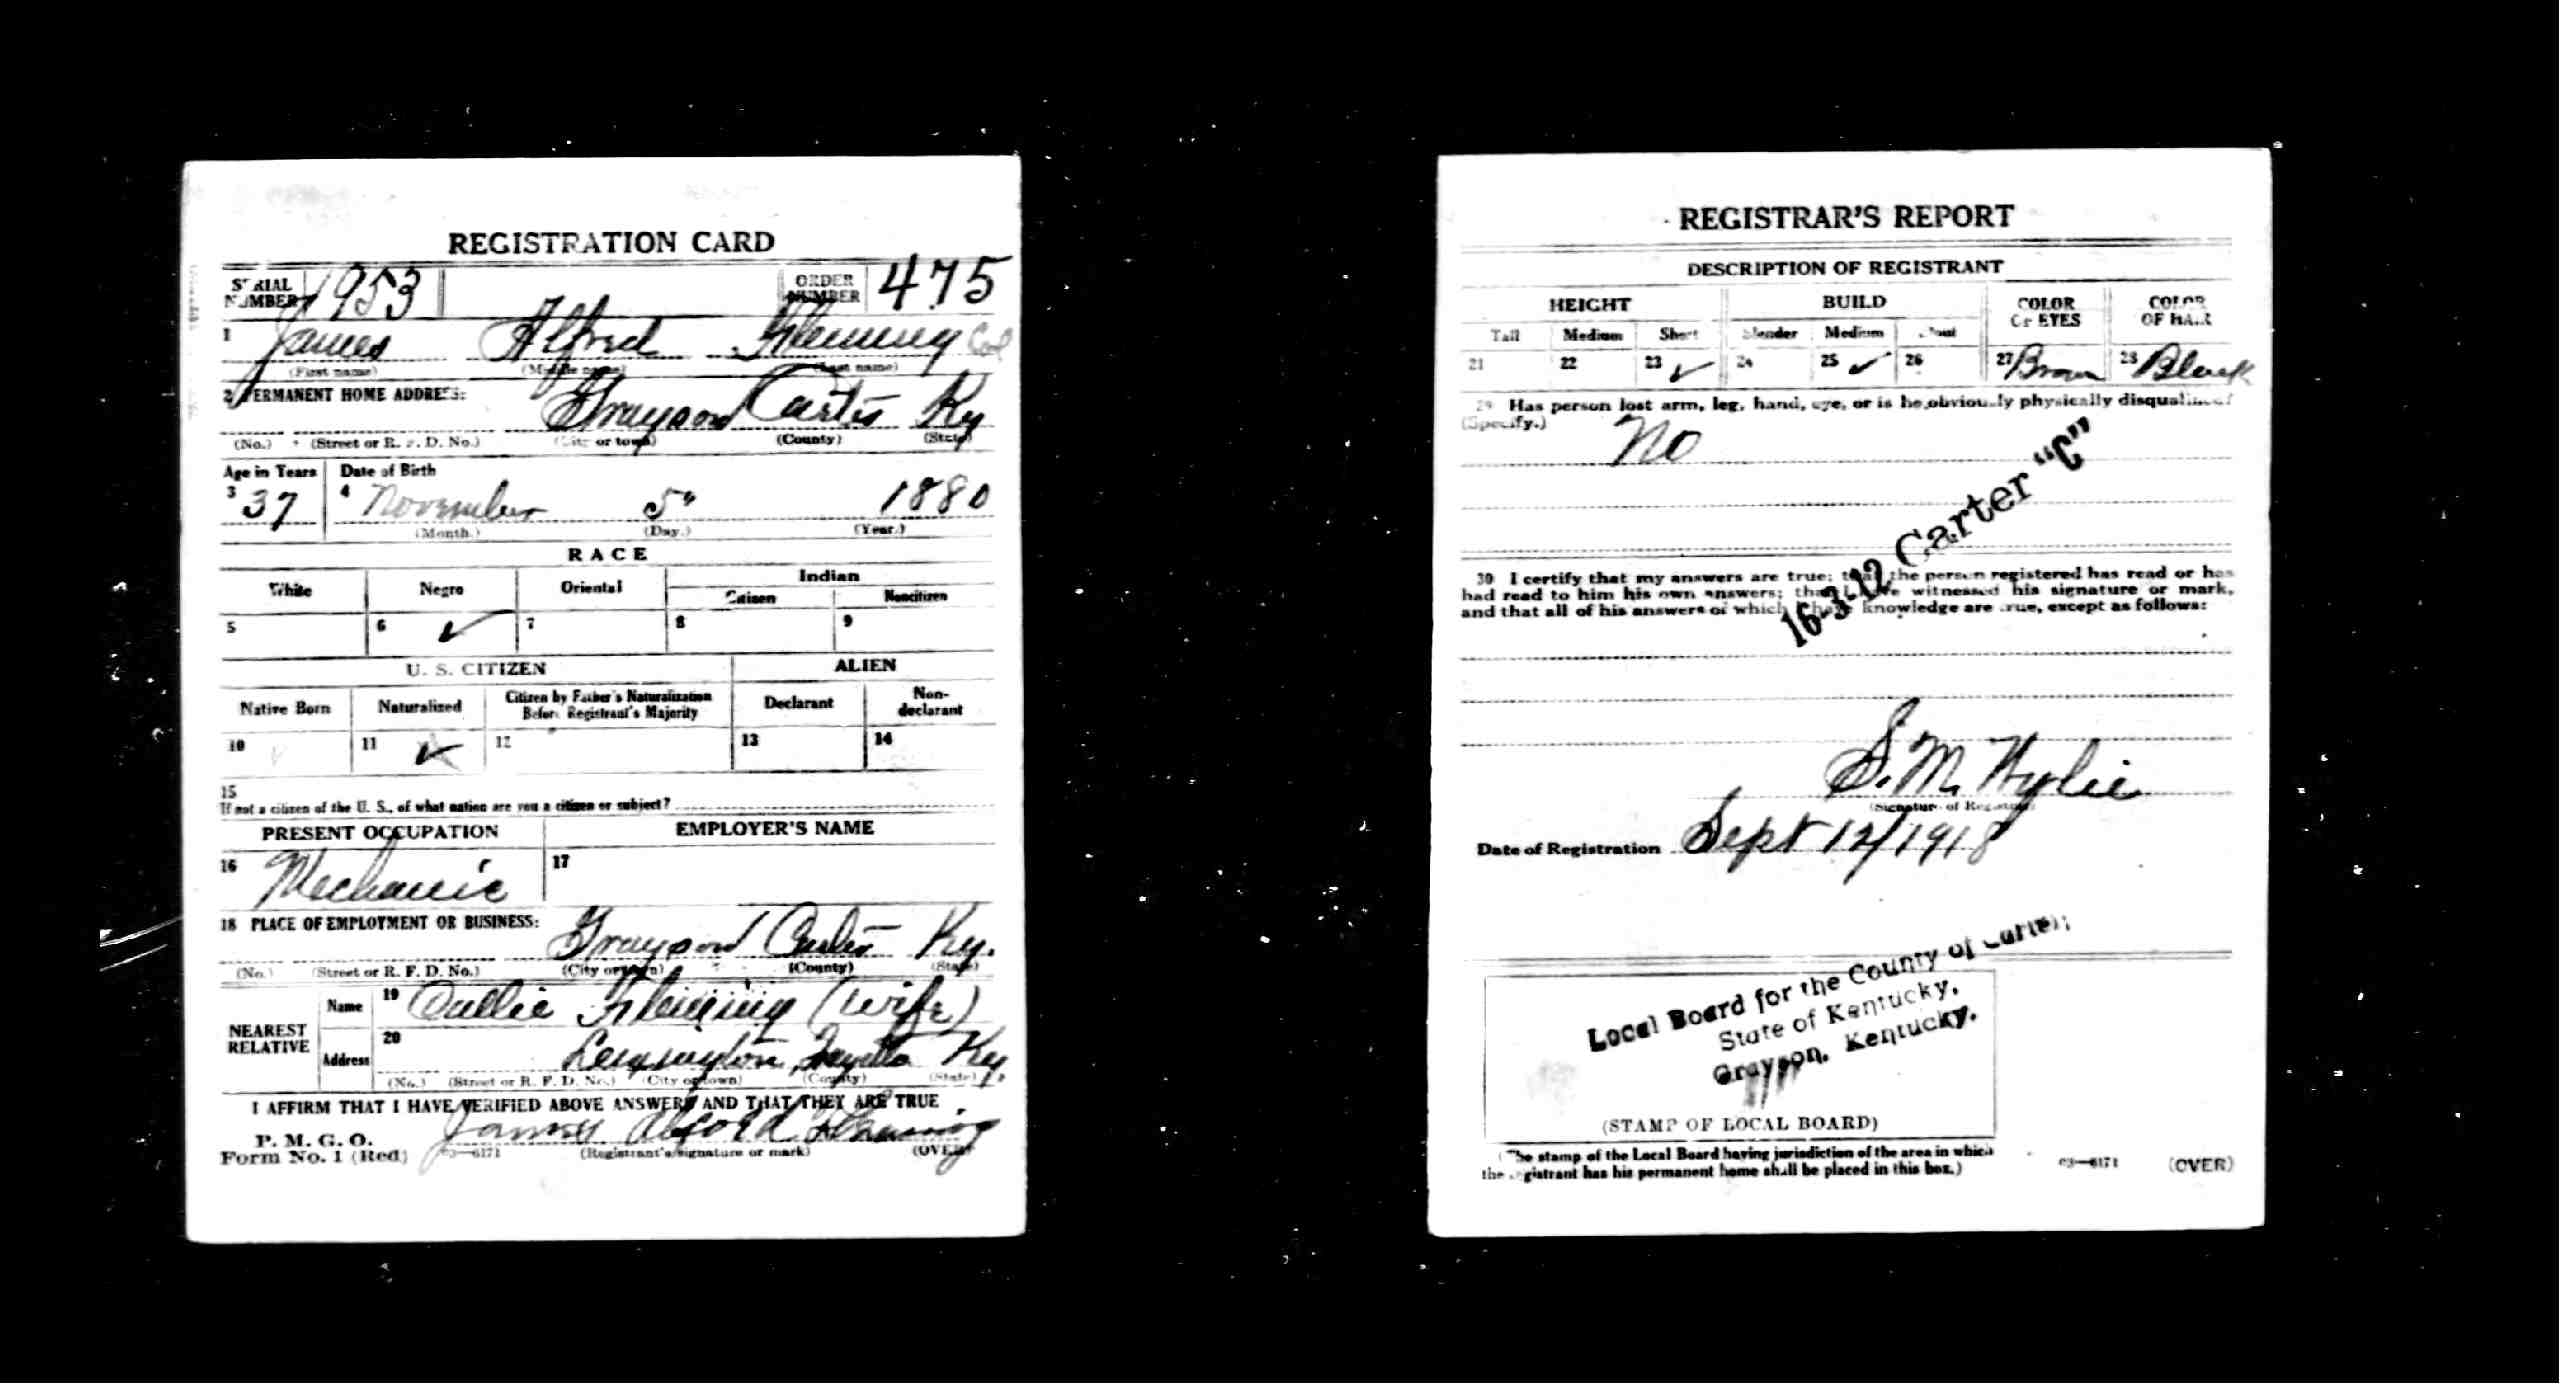 REGISTRATION CARD
SERIAL NUMBER 1953 ORDER NUMBER 475
1 James Alfred Fleming Col
(First name) (Middle name) (Last name)
2 PERMANENT HOME ADDRESS:
Grayson Carter Ky
(No.) (Street or R. F. D. No.) (City or town) (County) (State)
Age in Years Date of Birth
3 37 4 November 5" 1880
(Month.) (Day.) (Year.)
RACE
White Negro Oriental Indian
Citizen Noncitizen
5 6 ✓ 7 8 9
U. S. CITIZEN ALIEN
Native Born Naturalized Citizen by Father's Naturalization Before Registrant's Majority Declarant Non-declarant
10 11 ✓ 12 13 14
15
If not a citizen of the U. S., of what nation are you a citizen or subject?
PRESENT OCCUPATION EMPLOYER'S NAME
16 Mechanic 17
18 PLACE OF EMPLOYMENT OR BUSINESS:
Grayson Carter Ky.
(No.) (Street or R. F. D. No.) (City or town) (County) (State)
NEAREST RELATIVE
Name 19 Callie Fleming (wife)
Address 20 Lexington, Fayette Ky.
(No.) (Street or R. F. D. No.) (City or town) (County) (State)
I AFFIRM THAT I HAVE VERIFIED ABOVE ANSWERS AND THAT THEY ARE TRUE
P. M. G. O.
Form No. 1 (Red) James Alford Fleming
03—6171 (Registrant's signature or mark) (OVER)
REGISTRAR'S REPORT
DESCRIPTION OF REGISTRANT
HEIGHT BUILD COLOR OF EYES COLOR OF HAIR
Tall Medium Short Slender Medium Stout
21 22 23 ✓ 24 25 ✓ 26 27 Brown 28 Black
29 Has person lost arm, leg, hand, eye, or is he obviously physically disqualified?
(Specify.) No
16-3-12 Carter "C"
30 I certify that my answers are true; that the person registered has read or has
had read to him his own answers; that I have witnessed his signature or mark,
and that all of his answers of which I have knowledge are true, except as follows:
S. M. Wylie
(Signature of Registrar)
Date of Registration Sept 12/1918
Local Board for the County of Carter,
State of Kentucky,
Grayson, Kentucky.
(STAMP OF LOCAL BOARD)
(The stamp of the Local Board having jurisdiction of the area in which
the registrant has his permanent home shall be placed in this box.)
03—6171 (OVER)